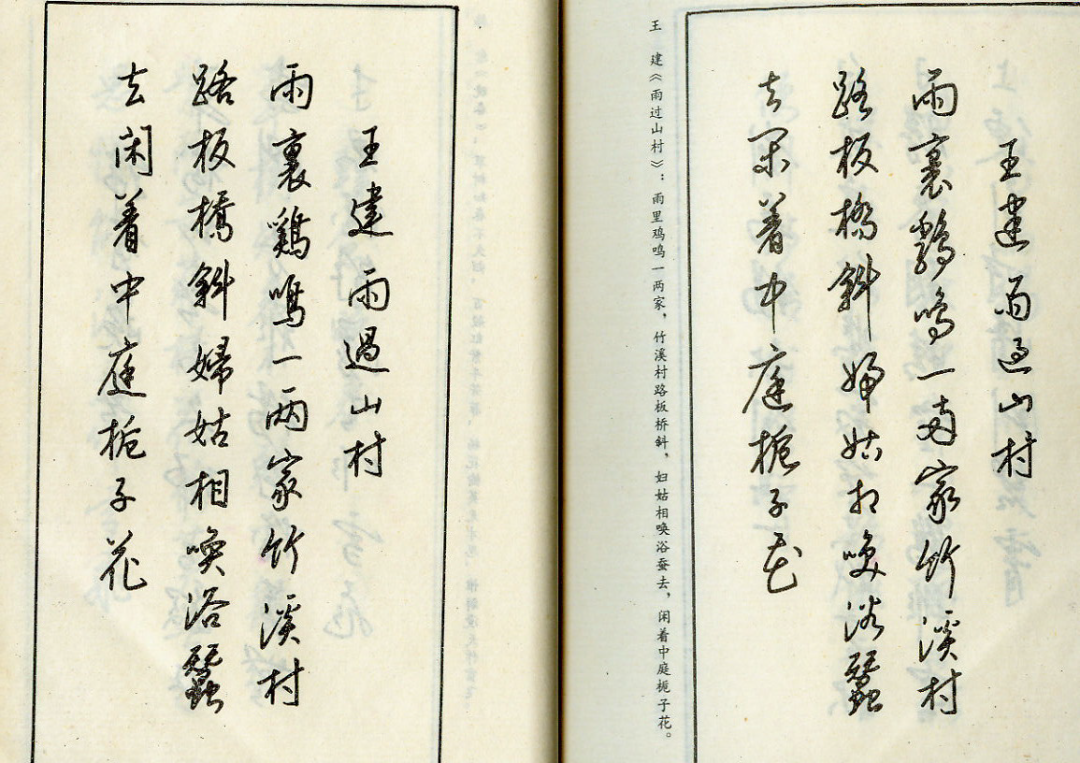 王建雨過山村
雨裏鷄鳴一两家竹溪村
路板橋斜婦姑相喚浴蠶
去閑着中庭栀子花
王 建《雨过山村》：雨里鸡鸣一两家，竹溪村路板桥斜，妇姑相唤浴蚕去，闲着中庭栀子花。
王建 雨過山村
雨裏鷄鳴一两家竹溪村
路板橋斜婦姑相喚浴蠶
去閑着中庭栀子花